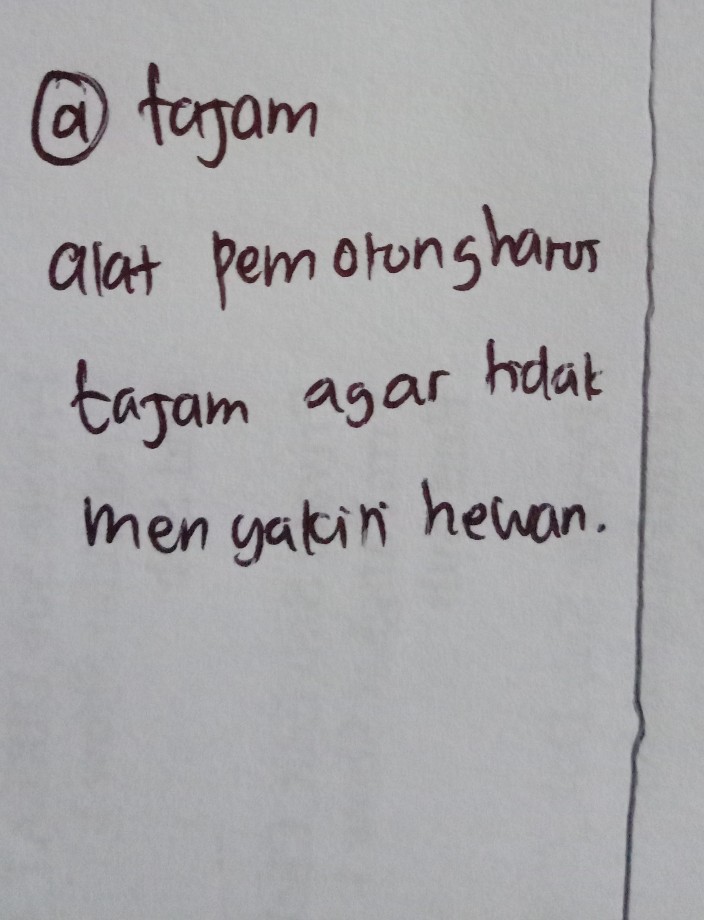 ⓐ tajam
alat pemotong harus
tajam agar tidak
menyakiti hewan.